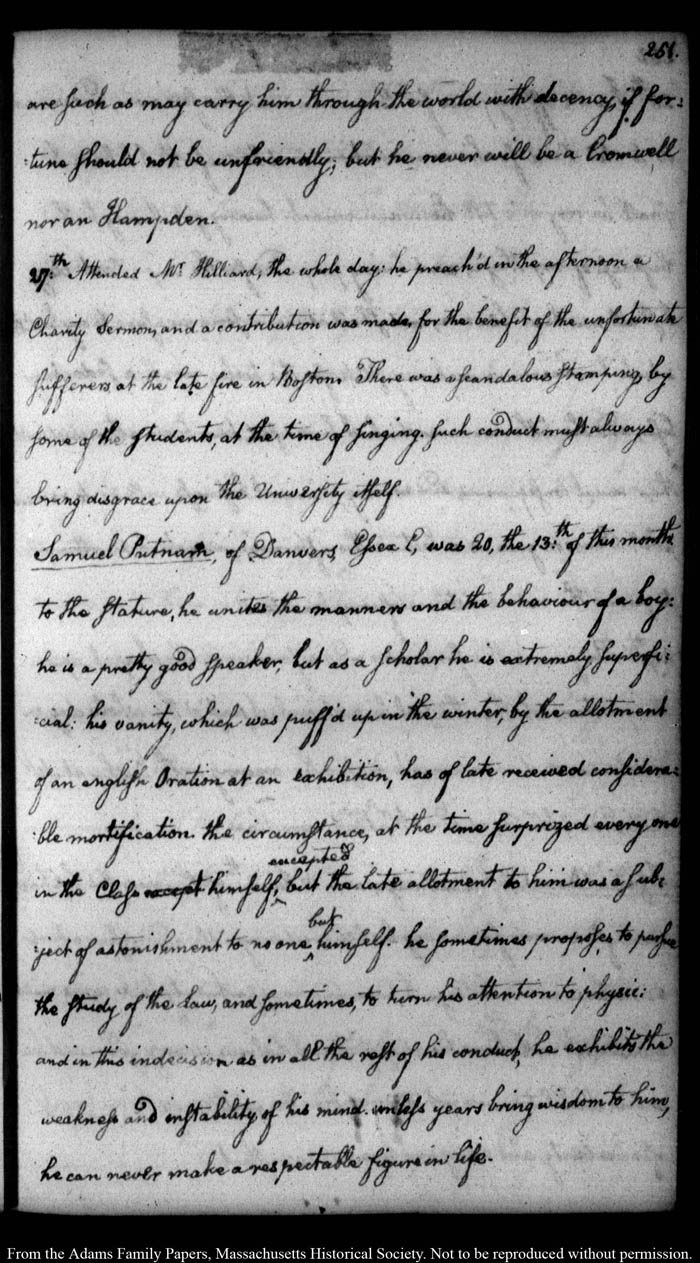 251.
are such as may carry him through the world with decency, if for:
:tune should not be unfriendly; but he never will be a Cromwell
nor an Hampden.
27:th Attended Mr Hilliard, the whole day: he preach'd in the afternoon a
Charity Sermon, and a contribution was made, for the benefit of the unfortunate
sufferers at the late fire in Boston. There was a scandalous stamping, by
some of the students, at the time of singing. such conduct must always
bring disgrace upon the University itself.
Samuel Putnam, of Danvers, Essex C, was 20, the 13:th of this month
to the stature, he unites the manners and the behaviour of a boy:
he is a pretty good speaker, but as a scholar he is extremely superfi:
:cial: his vanity, which was puff'd up in the winter, by the allotment
of an english Oration at an exhibition, has of late received considera:
:ble mortification. the circumstance, at the time surprized every one
excepted
in the Class except himself, but the late allotment to him was a sub:
but
:ject of astonishment to no one himself. he sometimes proposes to pursue
the study of the Law, and sometimes, to turn his attention to physic:
and in this indecision as in all the rest of his conduct, he exhibits the
weakness and instability of his mind. unless years bring wisdom to him,
he can never make a respectable figure in life.
From the Adams Family Papers, Massachusetts Historical Society. Not to be reproduced without permission.